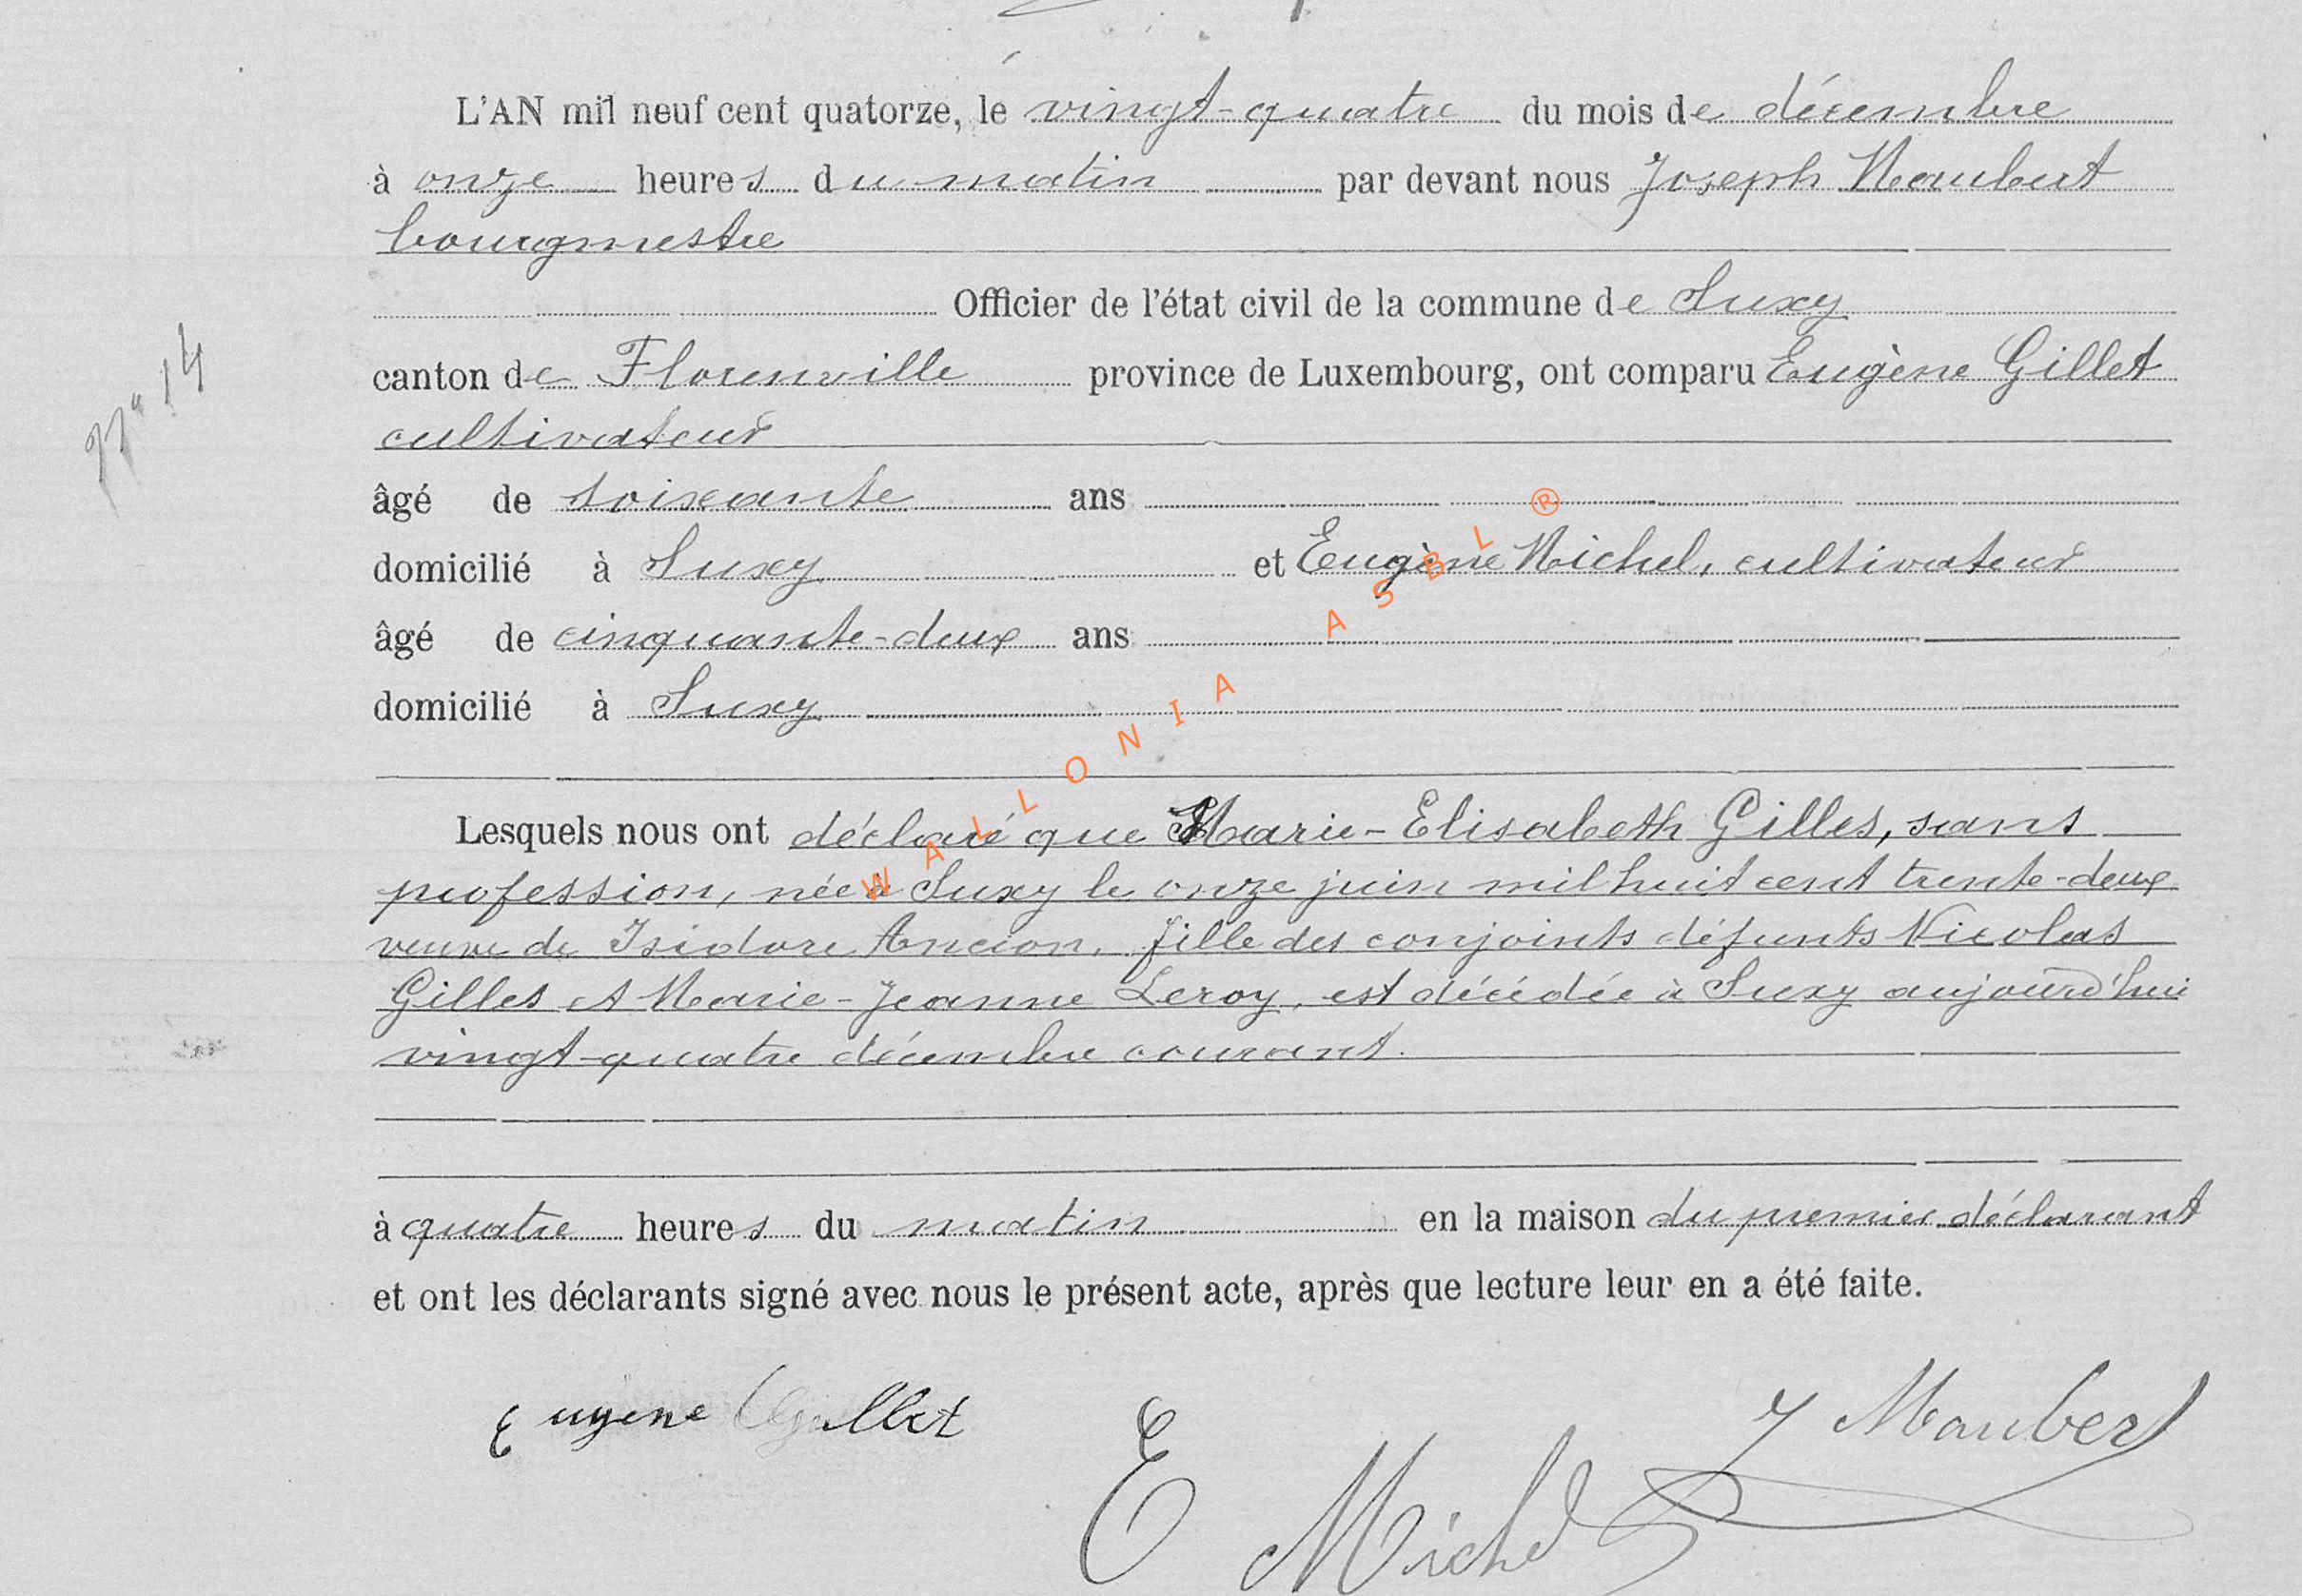 L'AN mil neuf cent quatorze, le vingt-quatre du mois de décembre
à onze heures du matin par devant nous Joseph Maubert
bourgmestre
Officier de l'état civil de la commune de Suxy
canton de Florenville province de Luxembourg, ont comparu Eugène Gillet
cultivateur
âgé de soixante ans
domicilié à Suxy et Eugène Michel, cultivateur
âgé de cinquante-deux ans
domicilié à Suxy
Lesquels nous ont déclaré que Marie-Elisabeth Gilles, sans
profession, née à Suxy le onze juin mil huit cent trente-deux
veuve de Isidore Ancion, fille des conjoints défunts Nicolas
Gilles et Marie-Jeanne Leroy, est décédée à Suxy aujourd'hui
vingt-quatre décembre courant.
à quatre heures du matin en la maison du premier déclarant
et ont les déclarants signé avec nous le présent acte, après que lecture leur en a été faite.
Eugene Gillet
J Maubert
E Michel
N° 14
WALLONIA ASBL ®